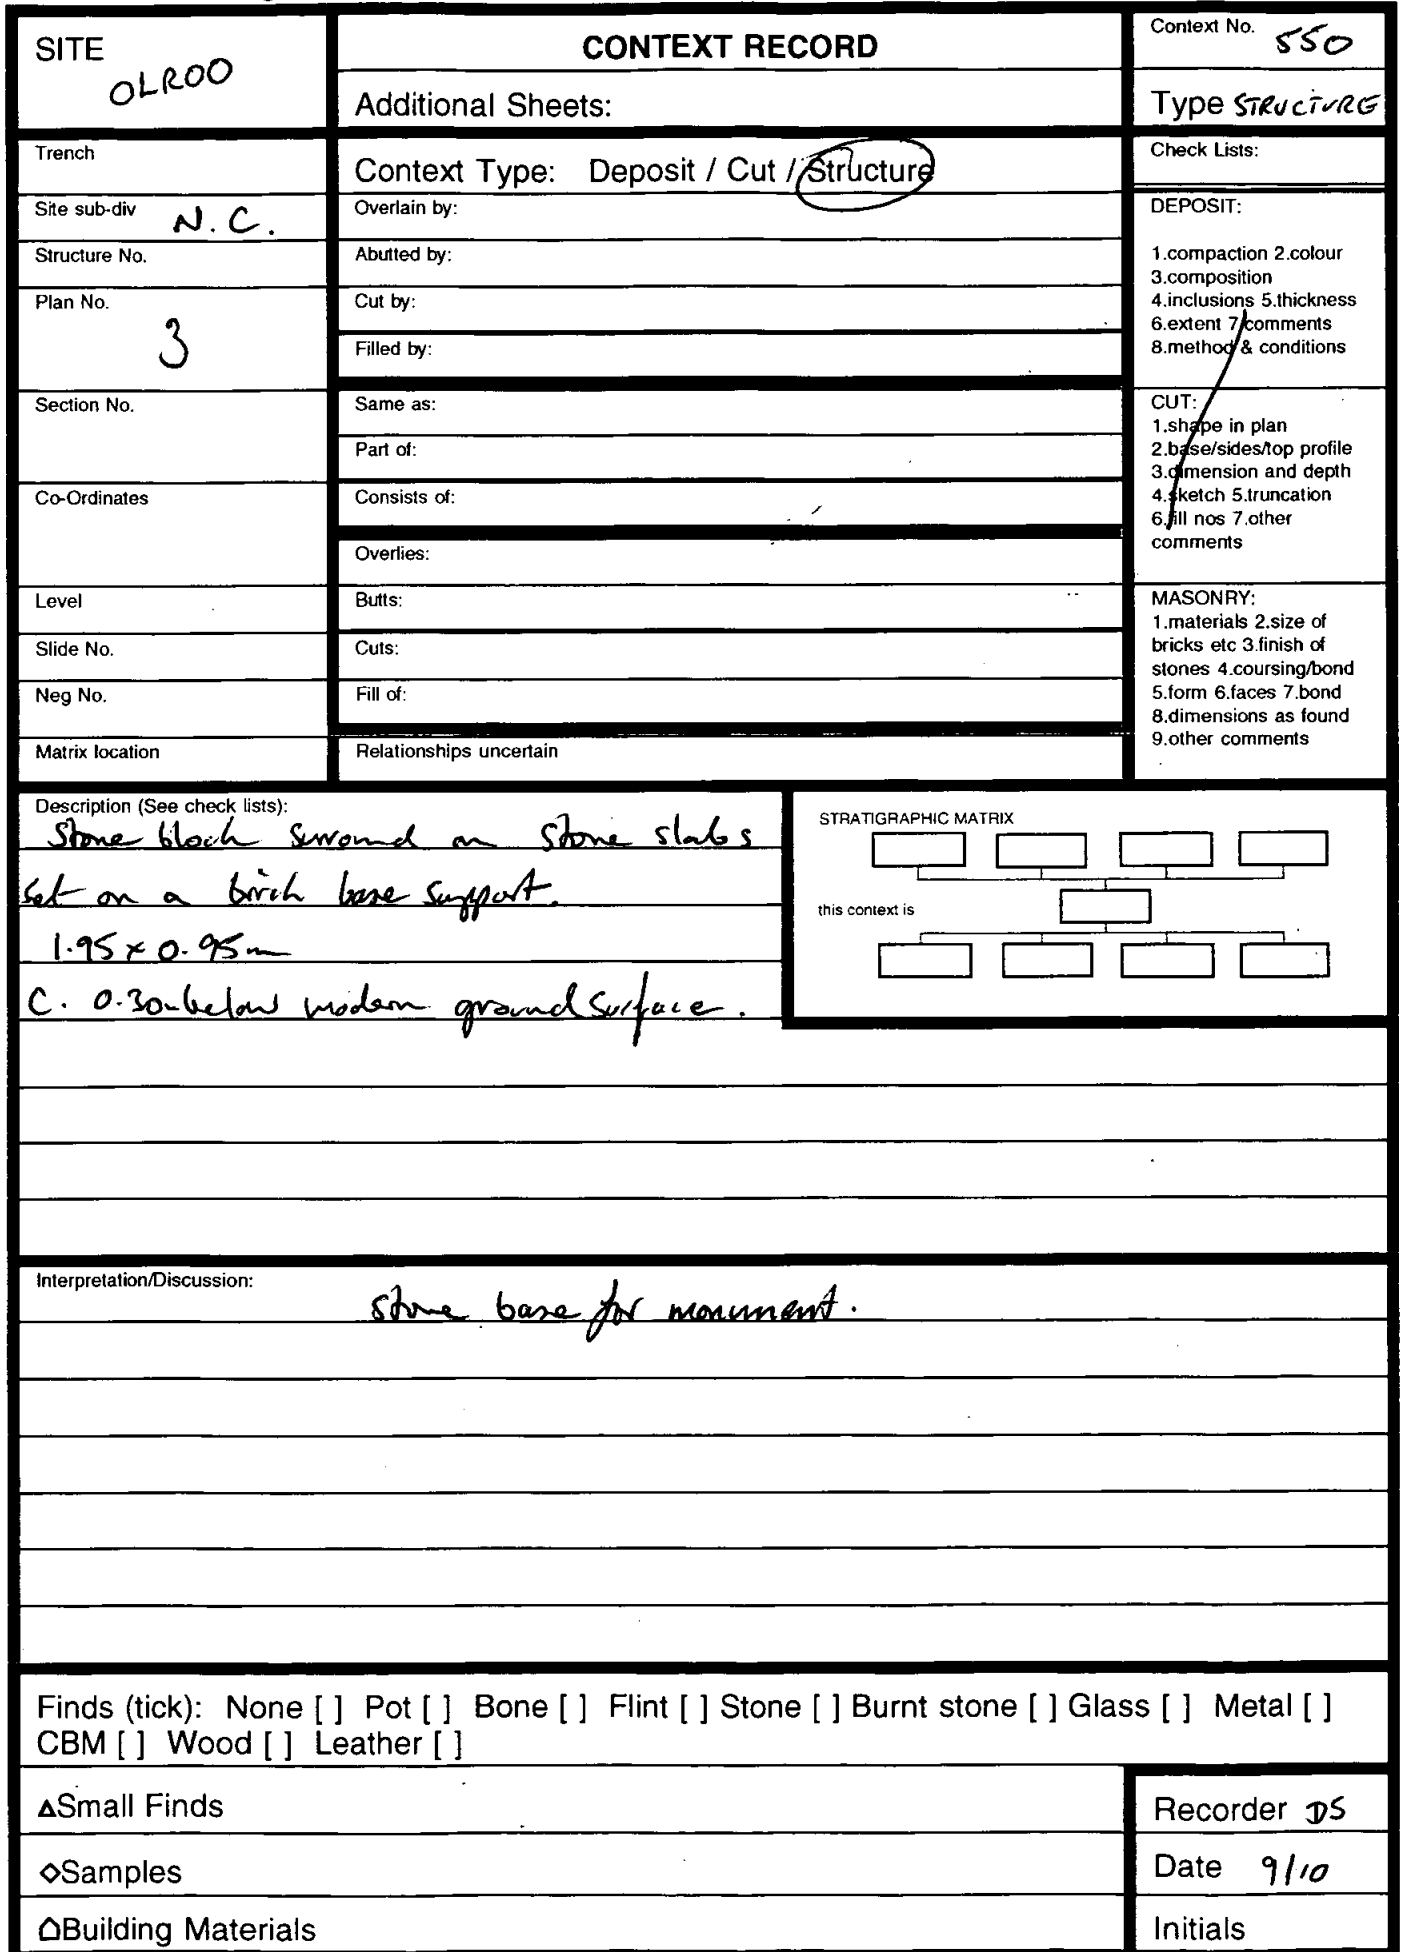 SITE
OLROO
CONTEXT RECORD
Additional Sheets:
Context No. 550
Type STRUCTURE
Trench
Site sub-div N.C.
Structure No.
Plan No.
3
Section No.
Co-Ordinates
Level
Slide No.
Neg No.
Matrix location
Context Type: Deposit / Cut / Structure
Overlain by:
Abutted by:
Cut by:
Filled by:
Same as:
Part of:
Consists of:
Overlies:
Butts:
Cuts:
Fill of:
Relationships uncertain
Check Lists:
DEPOSIT:
1.compaction 2.colour
3.composition
4.inclusions 5.thickness
6.extent 7.comments
8.method & conditions
CUT:
1.shape in plan
2.base/sides/top profile
3.dimension and depth
4.sketch 5.truncation
6.fill nos 7.other
comments
MASONRY:
1.materials 2.size of
bricks etc 3.finish of
stones 4.coursing/bond
5.form 6.faces 7.bond
8.dimensions as found
9.other comments
Description (See check lists):
Stone block surround on stone slabs
set on a brick base support.
1.95 x 0.95m
C. 0.30m below modern ground surface.
STRATIGRAPHIC MATRIX
this context is
Interpretation/Discussion:
stone base for monument.
Finds (tick): None [ ] Pot [ ] Bone [ ] Flint [ ] Stone [ ] Burnt stone [ ] Glass [ ] Metal [ ]
CBM [ ] Wood [ ] Leather [ ]
△Small Finds
◇Samples
⌂Building Materials
Recorder DS
Date 9/10
Initials